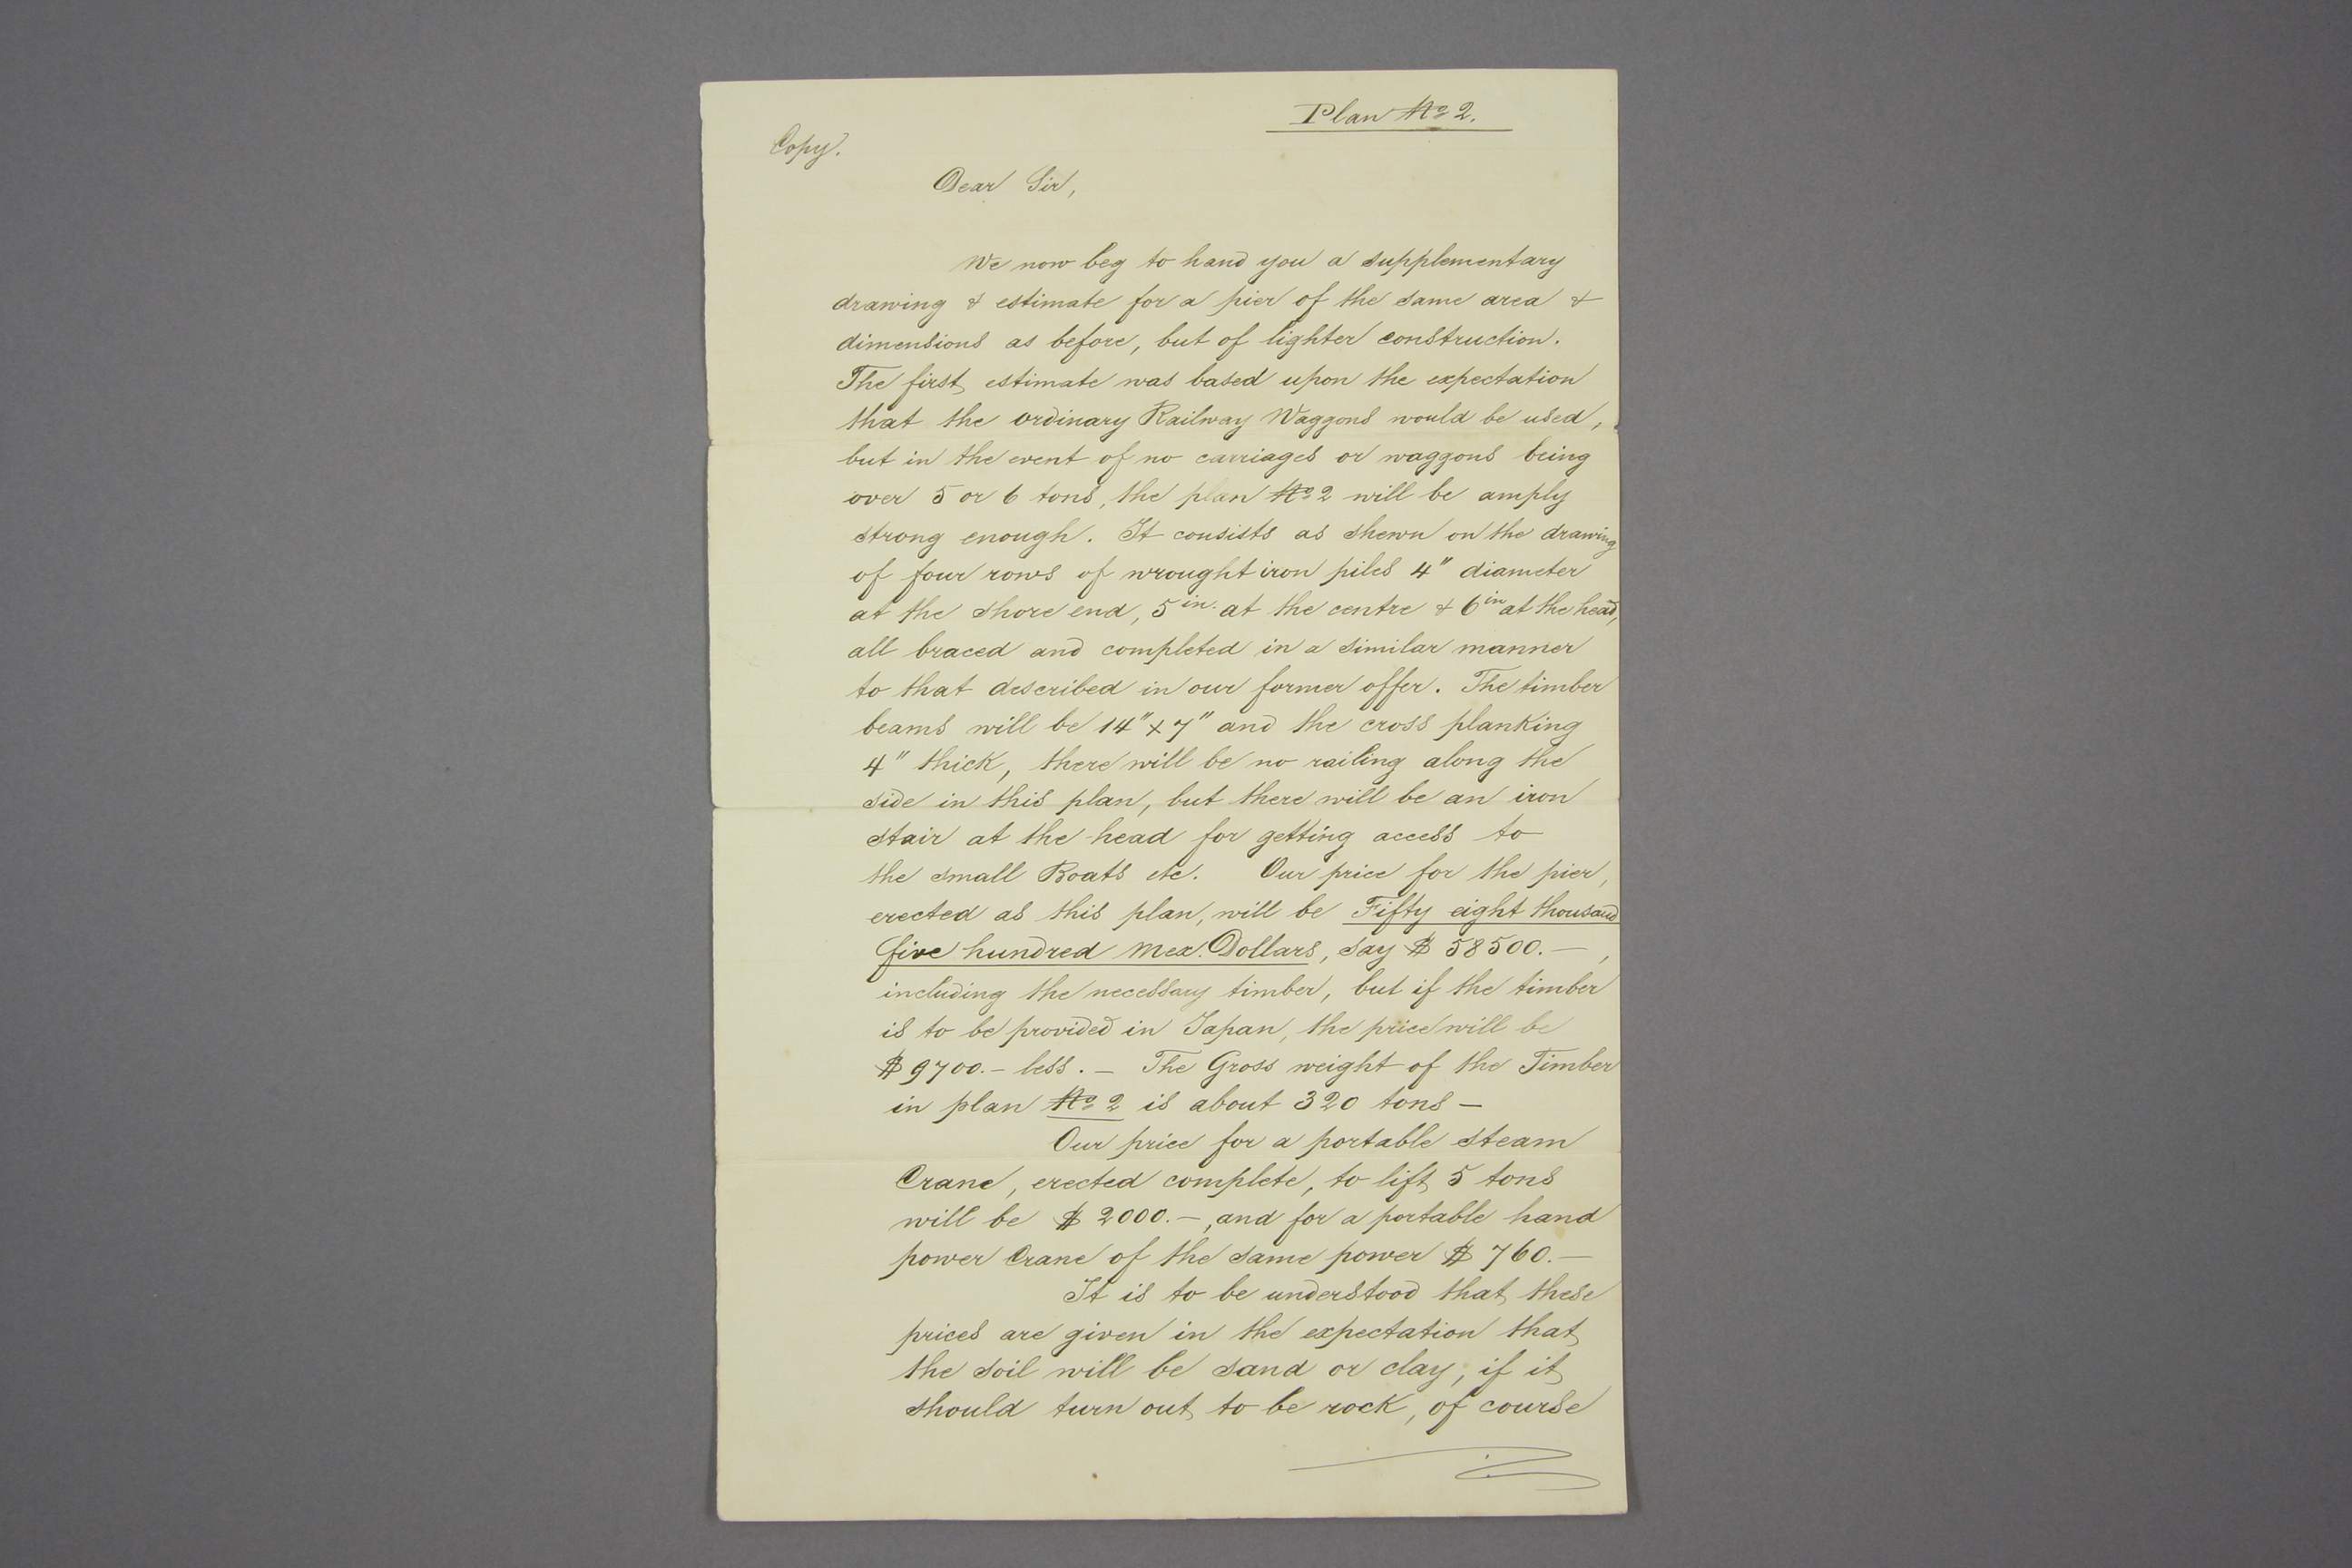 Plan No 2.
Copy.
Dear Sir,
We now beg to hand you a supplementary
drawing & estimate for a pier of the same area &
dimensions as before, but of lighter construction.
The first estimate was based upon the expectation
that the ordinary Railway Waggons would be used,
but in the event of no carriages or waggons being
over 5 or 6 tons, the plan No 2 will be amply
strong enough. It consists as shewn on the drawing
of four rows of wrought iron piles 4" diameter
at the shore end, 5 in. at the centre & 6 in at the head,
all braced and completed in a similar manner
to that described in our former offer. The timber
beams will be 14" x 7" and the cross planking
4" thick, there will be no railing along the
side in this plan, but there will be an iron
stair at the head for getting access to
the small Boats etc. Our price for the pier,
erected as this plan, will be Fifty eight thousand
five hundred Mex. Dollars, say $ 58500.—,
including the necessary timber, but if the timber
is to be provided in Japan, the price will be
$ 9700.— less. — The Gross weight of the Timber
in plan No 2 is about 320 tons —
Our price for a portable steam
Crane, erected complete, to lift 5 tons
will be $ 2000.—, and for a portable hand
power Crane of the same power $ 760.—
It is to be understood that these
prices are given in the expectation that
the soil will be sand or clay, if it
should turn out to be rock, of course